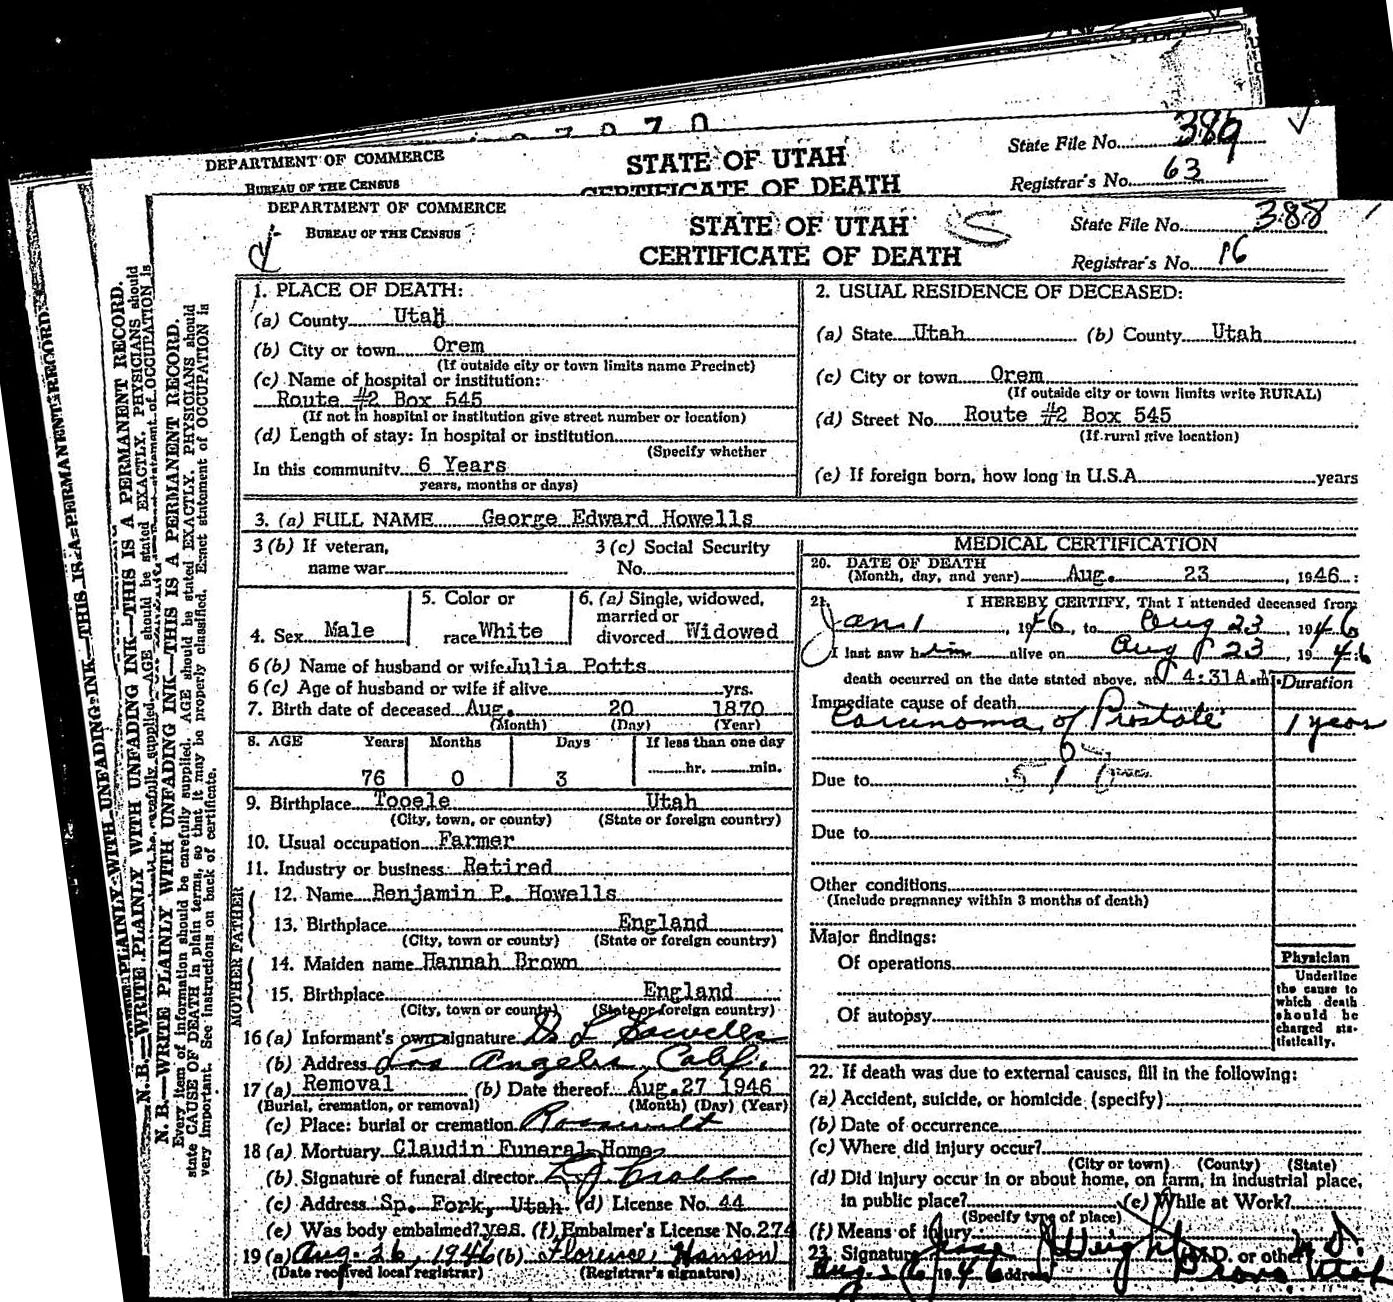 7 0 7 0
DEPARTMENT OF COMMERCE
BUREAU OF THE CENSUS
STATE OF UTAH
CERTIFICATE OF DEATH
State File No. 389
Registrar's No. 63
DEPARTMENT OF COMMERCE
BUREAU OF THE CENSUS
STATE OF UTAH
CERTIFICATE OF DEATH
State File No. 388
Registrar's No. 16
N. B.—WRITE PLAINLY WITH UNFADING INK—THIS IS A PERMANENT RECORD.
Every item of information should be carefully supplied. AGE should be stated EXACTLY. PHYSICIANS should
state CAUSE OF DEATH in plain terms, so that it may be properly classified. Exact statement of OCCUPATION is
very important. See instructions on back of certificate.
1. PLACE OF DEATH:
(a) County Utah
(b) City or town Orem
(If outside city or town limits name Precinct)
(c) Name of hospital or institution:
Route #2 Box 545
(If not in hospital or institution give street number or location)
(d) Length of stay: In hospital or institution
(Specify whether
In this community 6 Years
years, months or days)
2. USUAL RESIDENCE OF DECEASED:
(a) State Utah (b) County Utah
(c) City or town Orem
(If outside city or town limits write RURAL)
(d) Street No. Route #2 Box 545
(If rural give location)
(e) If foreign born, how long in U.S.A. years
3. (a) FULL NAME George Edward Howells
3 (b) If veteran,
name war
3 (c) Social Security
No.
4. Sex Male
5. Color or
race White
6. (a) Single, widowed,
married or
divorced Widowed
6 (b) Name of husband or wife Julia Potts
6 (c) Age of husband or wife if alive yrs.
7. Birth date of deceased Aug. 20 1870
(Month) (Day) (Year)
8. AGE Years Months Days If less than one day
76 0 3 hr. min.
9. Birthplace Tooele Utah
(City, town, or county) (State or foreign country)
10. Usual occupation Farmer
11. Industry or business Retired
FATHER
12. Name Benjamin P. Howells
13. Birthplace England
(City, town or county) (State or foreign country)
MOTHER
14. Maiden name Hannah Brown
15. Birthplace England
(City, town or county) (State or foreign country)
16 (a) Informant's own signature L Howells
(b) Address Los Angeles, Calif.
17 (a) Removal (b) Date thereof Aug. 27 1946
(Burial, cremation, or removal) (Month) (Day) (Year)
(c) Place: burial or cremation Roosevelt
18 (a) Mortuary Claudin Funeral Home
(b) Signature of funeral director
(c) Address Sp. Fork, Utah (d) License No. 44
(e) Was body embalmed? yes. (f) Embalmer's License No. 274
19 (a) Aug. 26, 1946 (b) Florence Hanson
(Date received local registrar) (Registrar's signature)
MEDICAL CERTIFICATION
20. DATE OF DEATH
(Month, day, and year) Aug. 23, 1946
21. I HEREBY CERTIFY, That I attended deceased from
Jan 1, 1946, to Aug 23 1946
I last saw him alive on Aug 23, 1946
death occurred on the date stated above, at 4:31A.M. Duration
Immediate cause of death
Carcinoma of Prostate 1 year
Due to
Due to
Other conditions
(Include pregnancy within 3 months of death)
Major findings:
Of operations
Of autopsy
Physician
Underline
the cause to
which death
should be
charged sta-
tistically.
22. If death was due to external causes, fill in the following:
(a) Accident, suicide, or homicide (specify)
(b) Date of occurrence
(c) Where did injury occur?
(City or town) (County) (State)
(d) Did injury occur in or about home, on farm, in industrial place,
in public place? (e) While at Work?
(Specify type of place)
(f) Means of injury
23. Signature Jesse Weight M.D. or other M.D.
Aug 26 1946 address Provo Utah